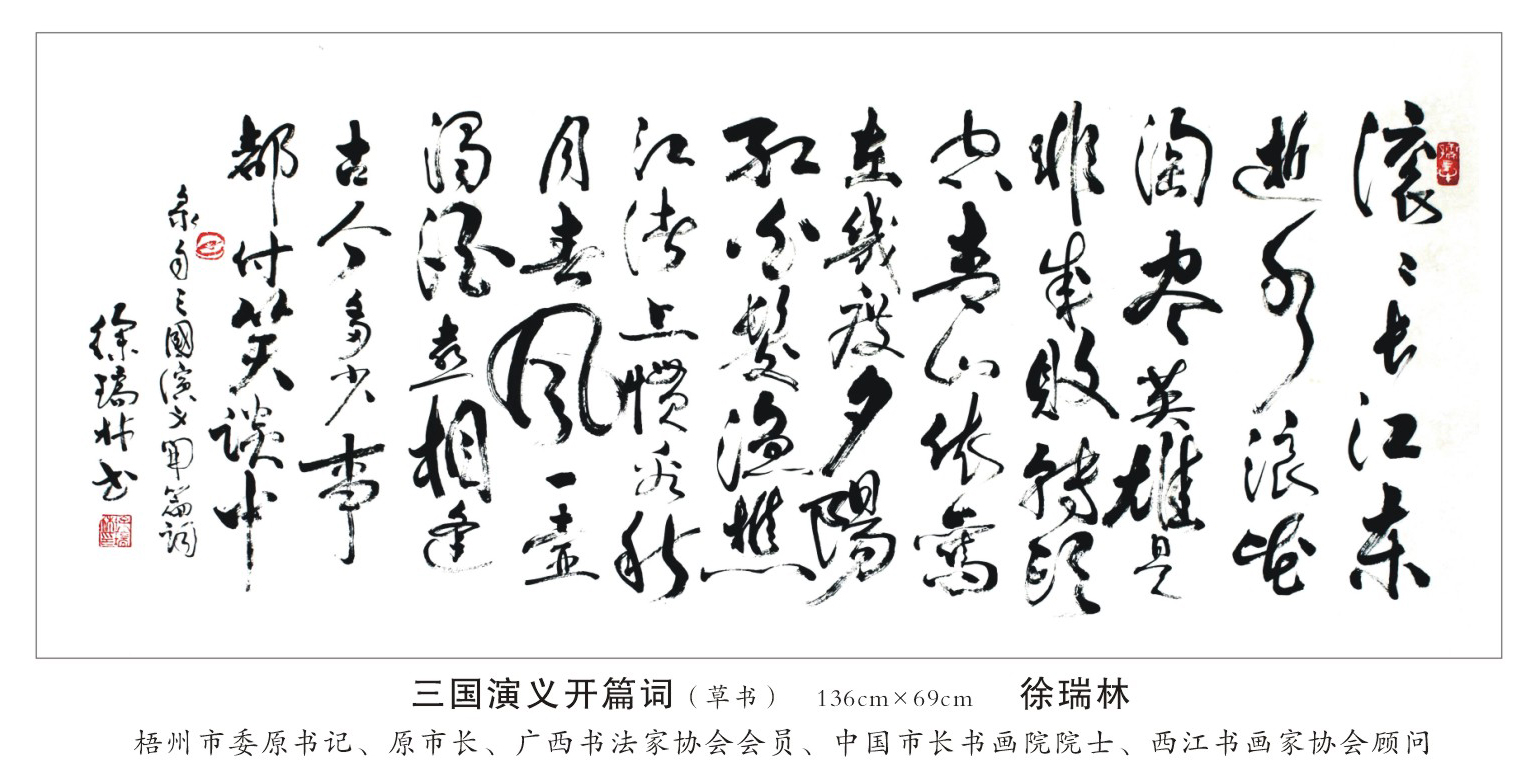 滚々长江东
逝水浪花
淘尽英雄是
非成败转头
空青山依舊
在幾度夕陽
红白髮渔樵
江渚上惯看秋
月春风一壶
濁酒喜相逢
古今多少事
都付笑谈中
录自三國演义开篇词
徐瑞林书
三国演义开篇词（草书） 136cm×69cm 徐瑞林
梧州市委原书记、原市长、广西书法家协会会员、中国市长书画院院士、西江书画家协会顾问